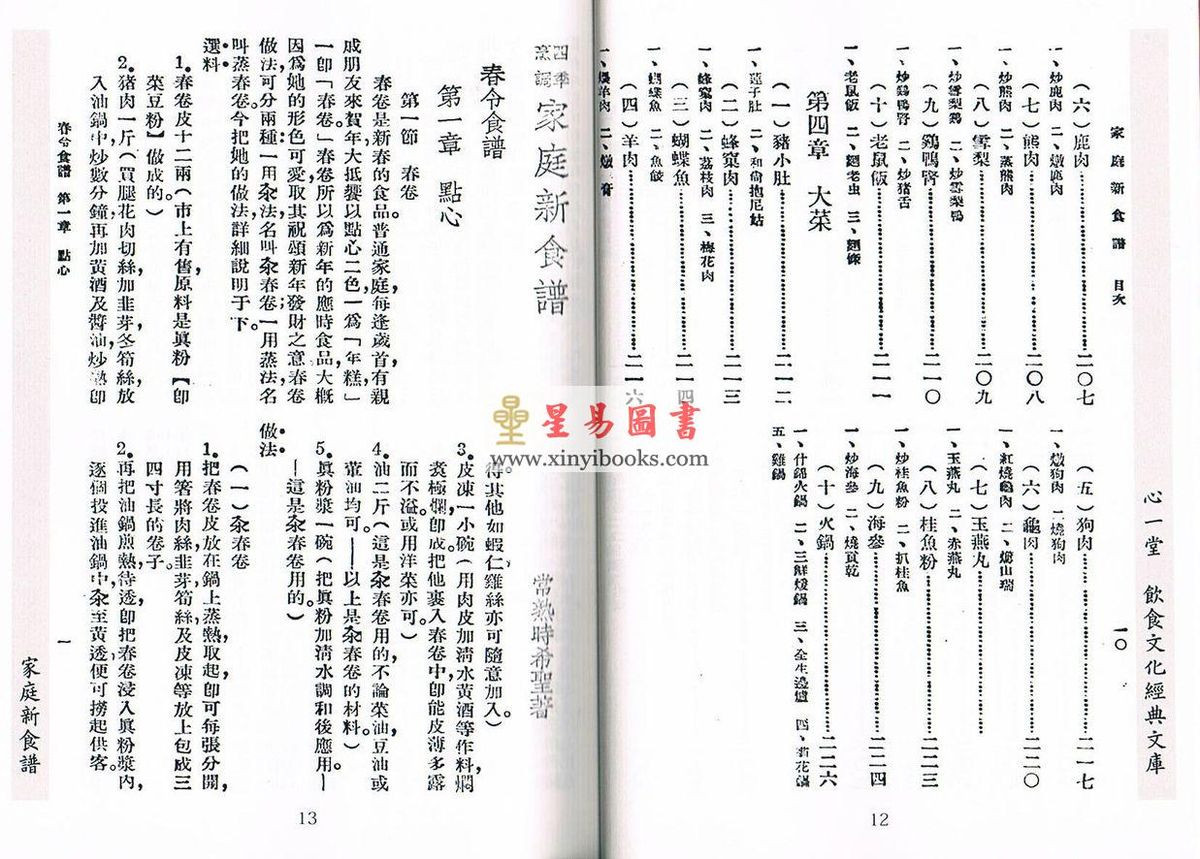 家庭新食譜 目次
一〇
（六）鹿肉…二〇七
一、炒鹿肉 二、燉鹿肉
（七）熊肉…二〇八
一、炒熊肉 二、蒸熊肉
（八）雪梨…二〇九
一、炒雪梨鷄 二、炒雪梨鴨
（九）鷄鴨腎…二一〇
一、炒鷄鴨腎 二、炒猪舌
（十）老鼠飯…二一一
一、老鼠飯 二、麵老虫 三、麵條
第四章 大菜
（一）豬小肚…二一二
一、蓮子肚 二、和尙抱尼姑
（二）蜂窠肉…二一三
一、蜂窠肉 二、荔枝肉 三、梅花肉
（三）蝴蝶魚…二一四
一、蝴蝶魚 二、魚餃
（四）羊肉…二一六
（五）狗肉…二一七
一、燉狗肉 二、燒狗肉
（六）龜肉…二二〇
（七）玉燕丸
一、玉燕丸 二、赤燕丸
（八）桂魚粉…二二三
一、炒桂魚粉 二、扒桂魚
（九）海參…二二四
一、炒海參 二、燒貢乾
（十）火鍋…二二六
一、什錦火鍋 二、三鮮煖鍋 三、全生邊爐 四、菊花鍋
五、雞鍋
心一堂 飲食文化經典文庫
12
四季烹調 家庭新食譜
常熟時希聖著
春令食譜
第一章 點心
第一節 春卷
春卷是新春的食品，普通家庭，每逢歲首，有親
戚朋友來賀年，大抵饗以點心二色，一爲「年糕」，
一卽「春卷」，春卷所以爲新年的應時食品，大槪
因爲她的形色可愛，取其祝頌新年發財之意，春卷
做法可分兩種：一用汆法，名叫汆春卷，一用蒸法，名
叫蒸春卷，今把她的做法，詳細說明于下。
選料
1。春卷皮十二兩。（市上有售，原料是眞粉【卽
菜豆粉】做成的）
2。猪肉一斤（買腿花肉切絲，加韭芽冬筍絲，放
入油鍋中，炒數分鐘，再加黃酒及醬油，炒熱卽
得。其他如蝦仁雞絲亦可隨意加入）。
3。皮凍一小碗。（用肉皮加淸水黃酒等作料，燜
煑極爛卽成，把他裹入春卷中，卽能皮薄多露
而不溢，或用洋菜亦可。）
4。油二斤（這是汆春卷用的，不論菜油豆油或
葷油均可。——以上是汆春卷的材料。）
5。眞粉漿一碗（把眞粉加淸水調和後應用——
——這是汆春卷用的。）
做法
（一）汆春卷
1。把春卷皮放在鍋上蒸熱取起，卽可每張分開，
用箸將肉絲韭芽筍絲及皮凍等放上，包成三
四寸長的卷子。
2。再把油鍋煎熱待透，卽把春卷浸入眞粉漿內，
逐個投進油鍋中，汆至黃透，便可撈起供客。
春令食譜 第一章 點心
一
家庭新食譜
13
星易圖書
www.xinyibooks.com